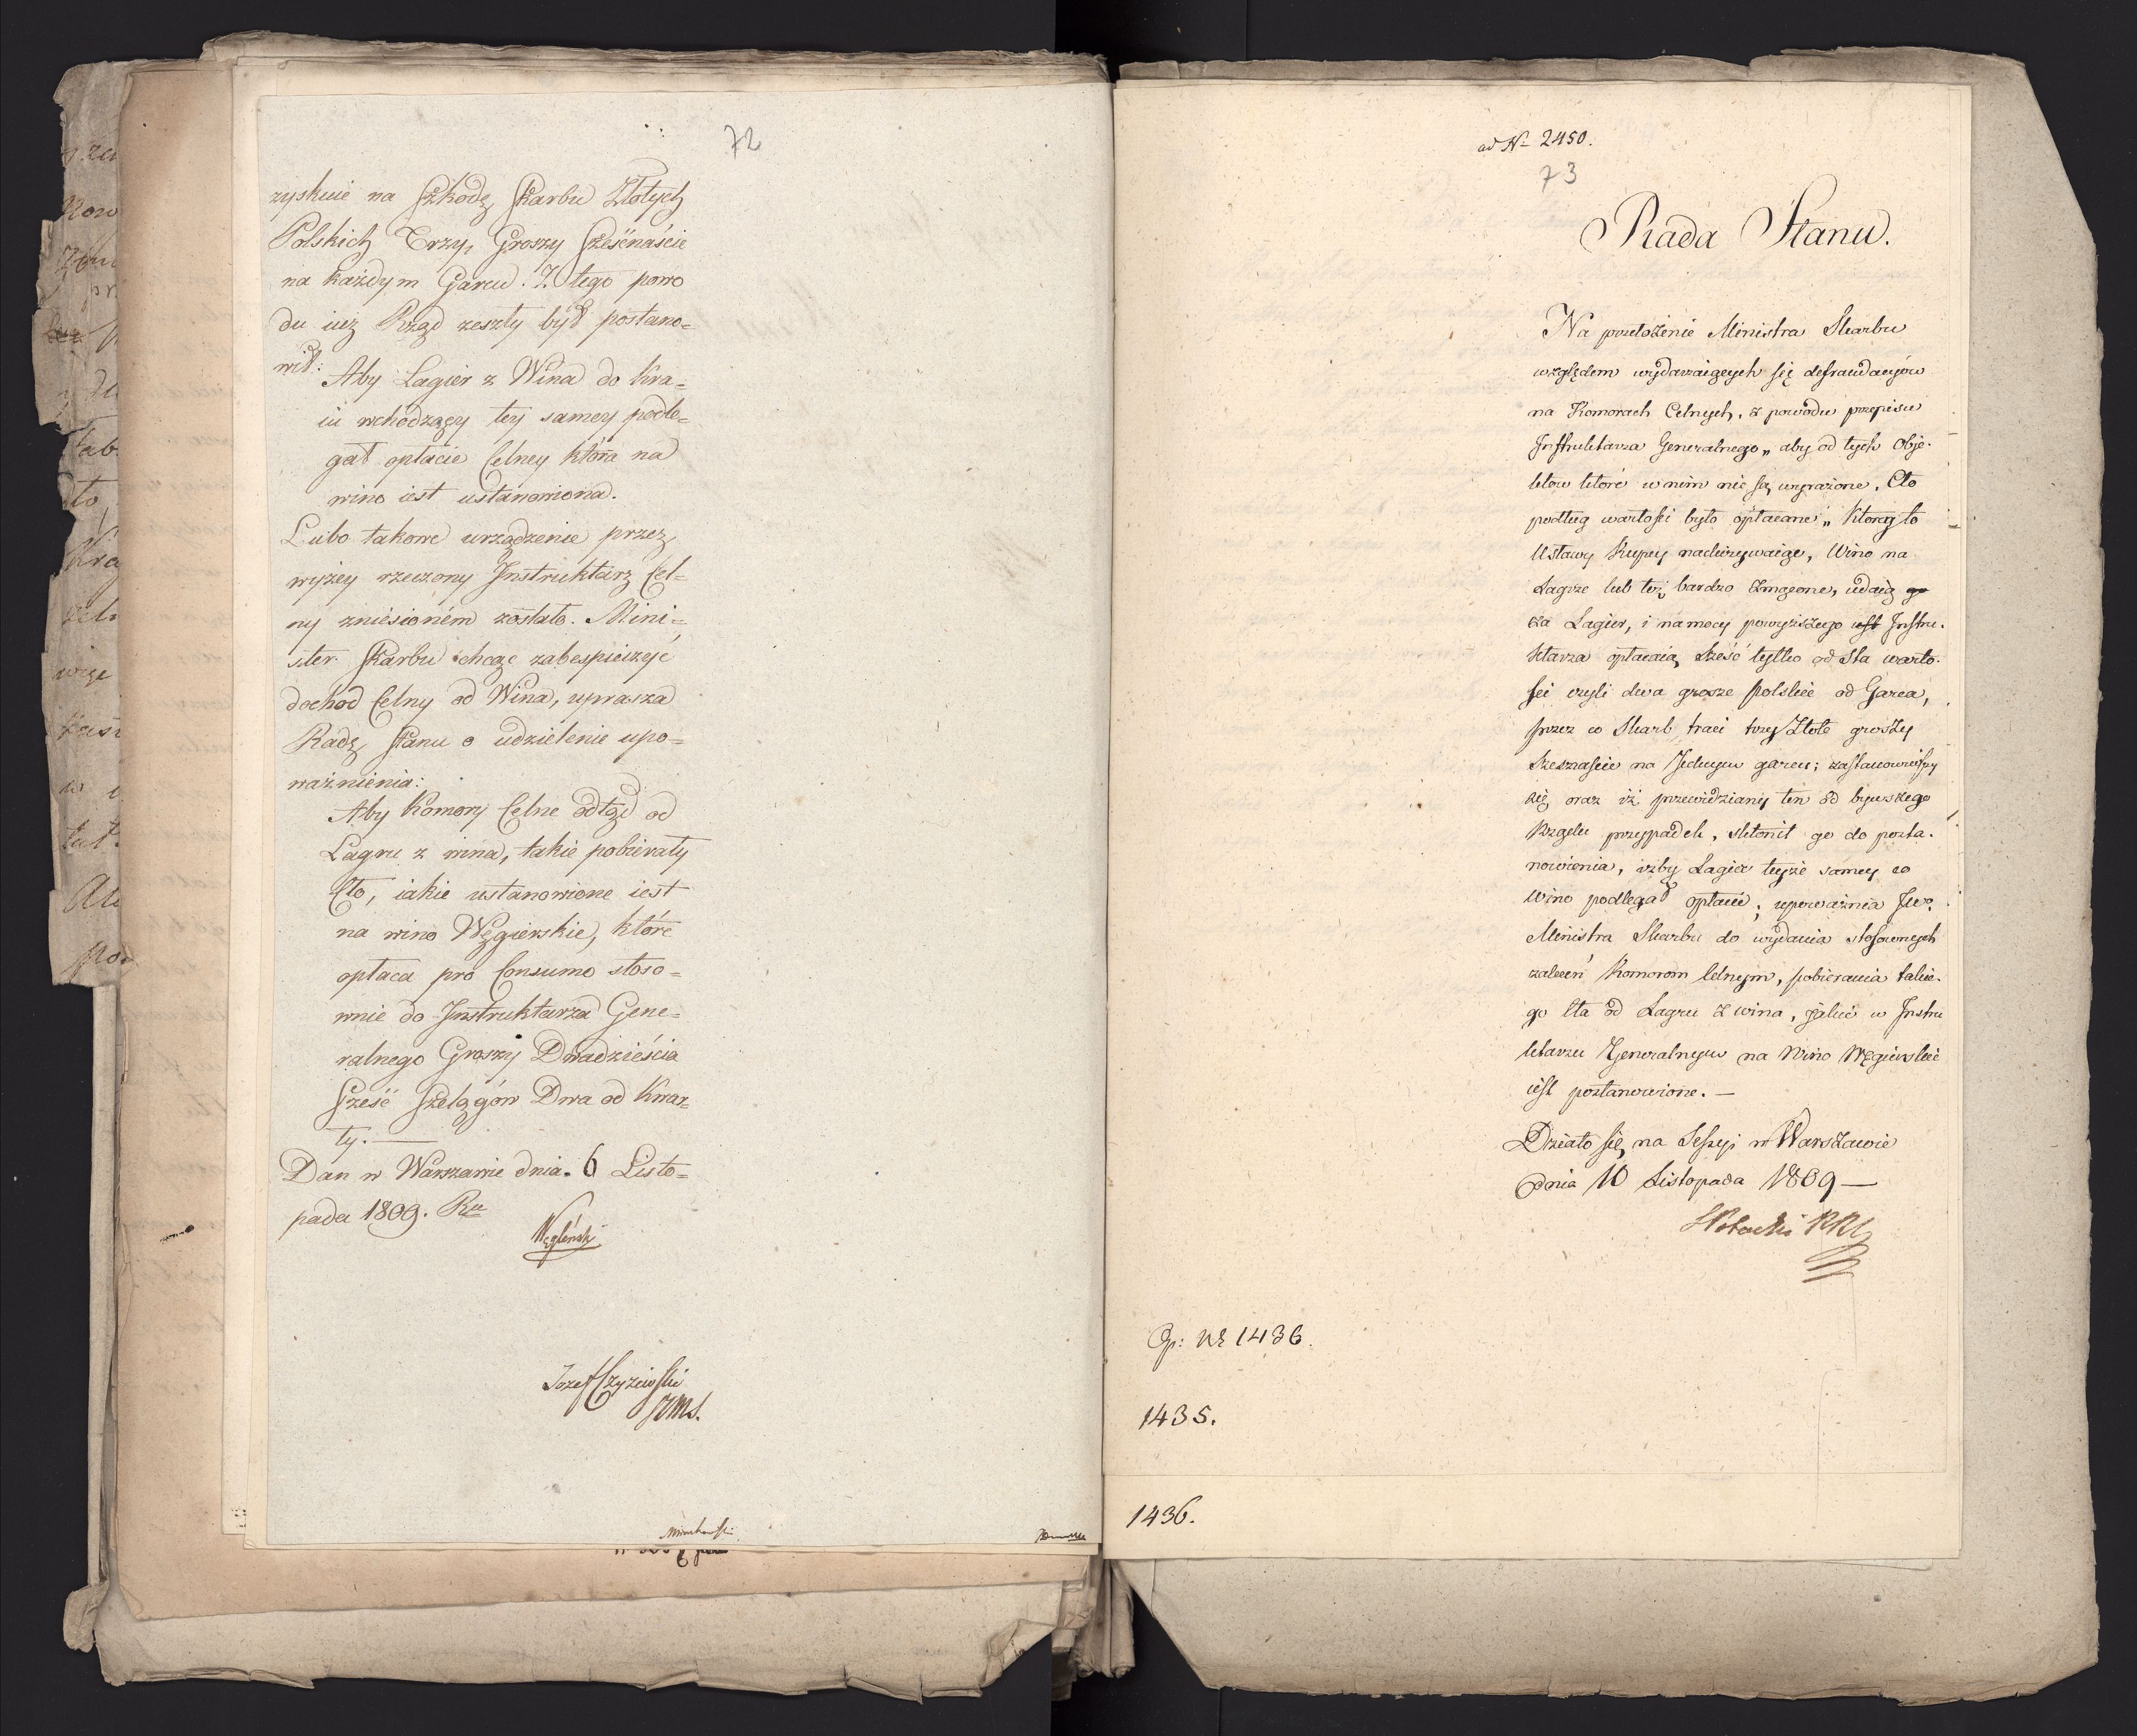 72
zyskuie na Szkodę Skarbu Złotych
Polskich Trzy, Groszy Szesnaście
na każdym Garcu. Z tego powo
du iuż Rząd zeszły był postano=
wił:
Aby Lagier z Wina do Kra=
iu wchodzący tey samey podle=
gał opłacie Celney która na
wino iest ustanowiona.
Lubo takowe urządzenie przez
wyżey rzeczony Instruktarz Cel=
ny zniesioném zostało. Mini=
ster Skarbu chcąc zabespieczyć
dochód Celny od Wina, uprasza
Radę Stanu o udzielenie upo=
ważnienia:
Aby Komory Celne odtąd od
Lagru z wina, takie pobierały
Cło, iakie ustanowione iest
na wino Węgierskie, które
opłaca pro Consumo stoso=
wnie do Instruktarza Gene=
ralnego Groszy Dwadzieścia
Sześć Szelągów Dwa od Kwar=
ty. —
Dan w Warszawie dnia 6 Listo=
pada 1809. Ru
Węgleński
Jozef Czyzewski
ad N- 2450.
73
Rada Stanu.
Na przełożenie Ministra Skarbu
względem wydarzaiących się defraudacyów
na Komorach Celnych, z powodu przepisu
Instruktarza Generalnego „ aby od tych Obje-
któw któré w nim nie są wyrażone, Cło
podług wartości było opłacane „ którey to
Ustawy Kupcy nadużywaiąc, Wino na
Lagrze lub téż bardzo zmącone, udaią
za Lagier, i na mocy powyższego Instru-
ktarza opłacaią sześć tylko od Sta warto-
ści czyli dwa grosze polskie od Garca,
przez co Skarb traci trzy Złote groszy
szesnaście na Jednym garcu; zastanowiwszy
się oraz iż przewidziany ten od bywszego
Rządu przypadek, skłonił go do posta-
nowienia, iżby Lagier teyże samey co
Wino podlegał opłacie; upoważnia Jwo
Ministra Skarbu do wydania stosownych
zaleceń Komorom Celnym, pobierania takie-
go Cła od Lagru z wina, jakié w Instru
ktarzu Generalnym na Wino Węgierskie
iest postanowione. —
Działo się na Sessyi w Warszawie
dnia 10 Listopada 1809 —
Potocki
Ep: N2 1436.
1435.
1436.